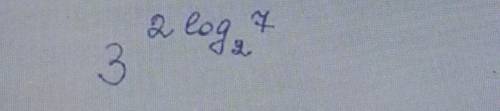 3^{2 log_2 7}